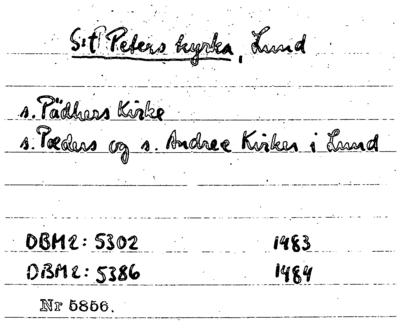 S:t Peters kyrka, Lund
s. Pädhers Kirke
s. Pæders og s. Andree Kirker i Lund
DBM 2: 5302 1483
DBM 2: 5386 1484
Nr 5856.